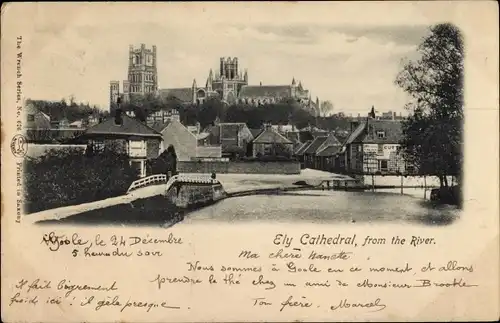 The Wrench Series, No.
Printed in Saxony
Ely Cathedral, from the River.
Goole, le 24 Décembre
5 heures du soir
Ma chère Nanette
Nous sommes à Goole en ce moment et allons
prendre le thé chez un ami de Monsieur
Ton frère, Marcel
Il fait bougrement
froid ici ! il gèle presque